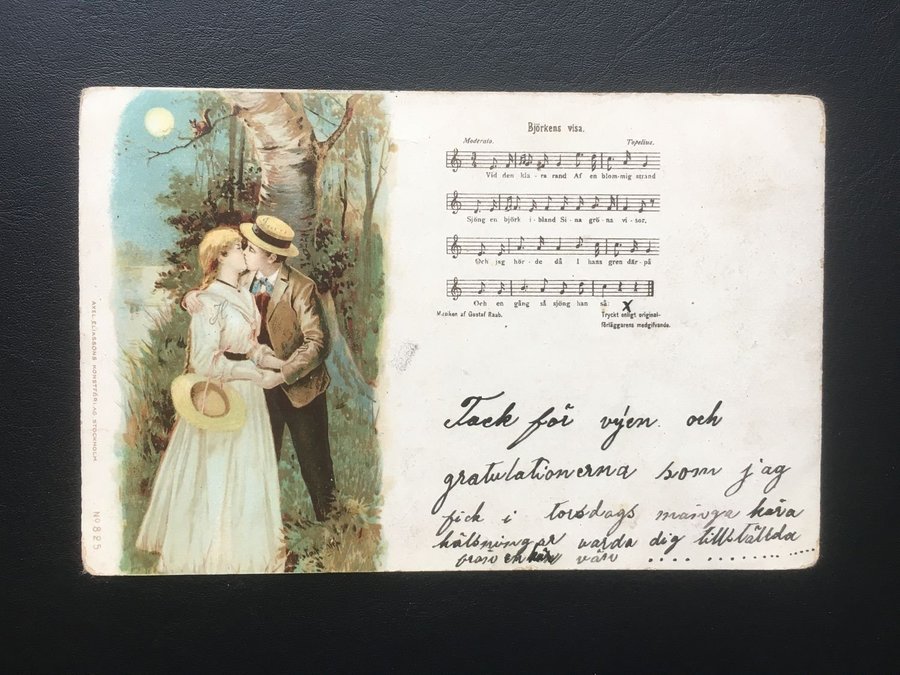 Björkens visa.
Moderato. Topelius.
Vid den kla - ra rand Af en blom-mig strand
Sjöng en björk i - bland Si - na grö - na vi - sor,
Och jag hör - de då I hans gren där - på
Och en gång så sjöng han så:
Musiken af Gustaf Raab.
Tryckt enligt original-
förläggarens medgifvande.
Tack för výen och
gratulationerna som jag
fick i torsdags många kära
hälsningar varda dig tillställda
från en vän
AXEL ELIASSONS KONSTFÖRLAG STOCKHOLM
No 825